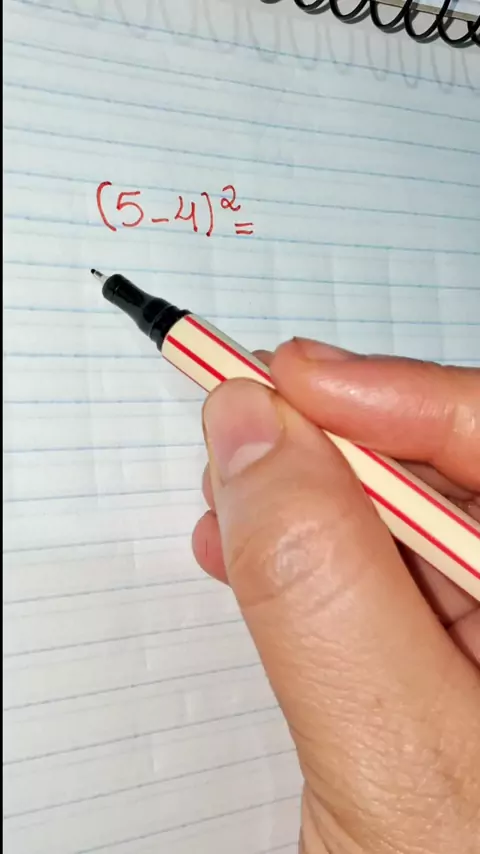 (5-4)²=